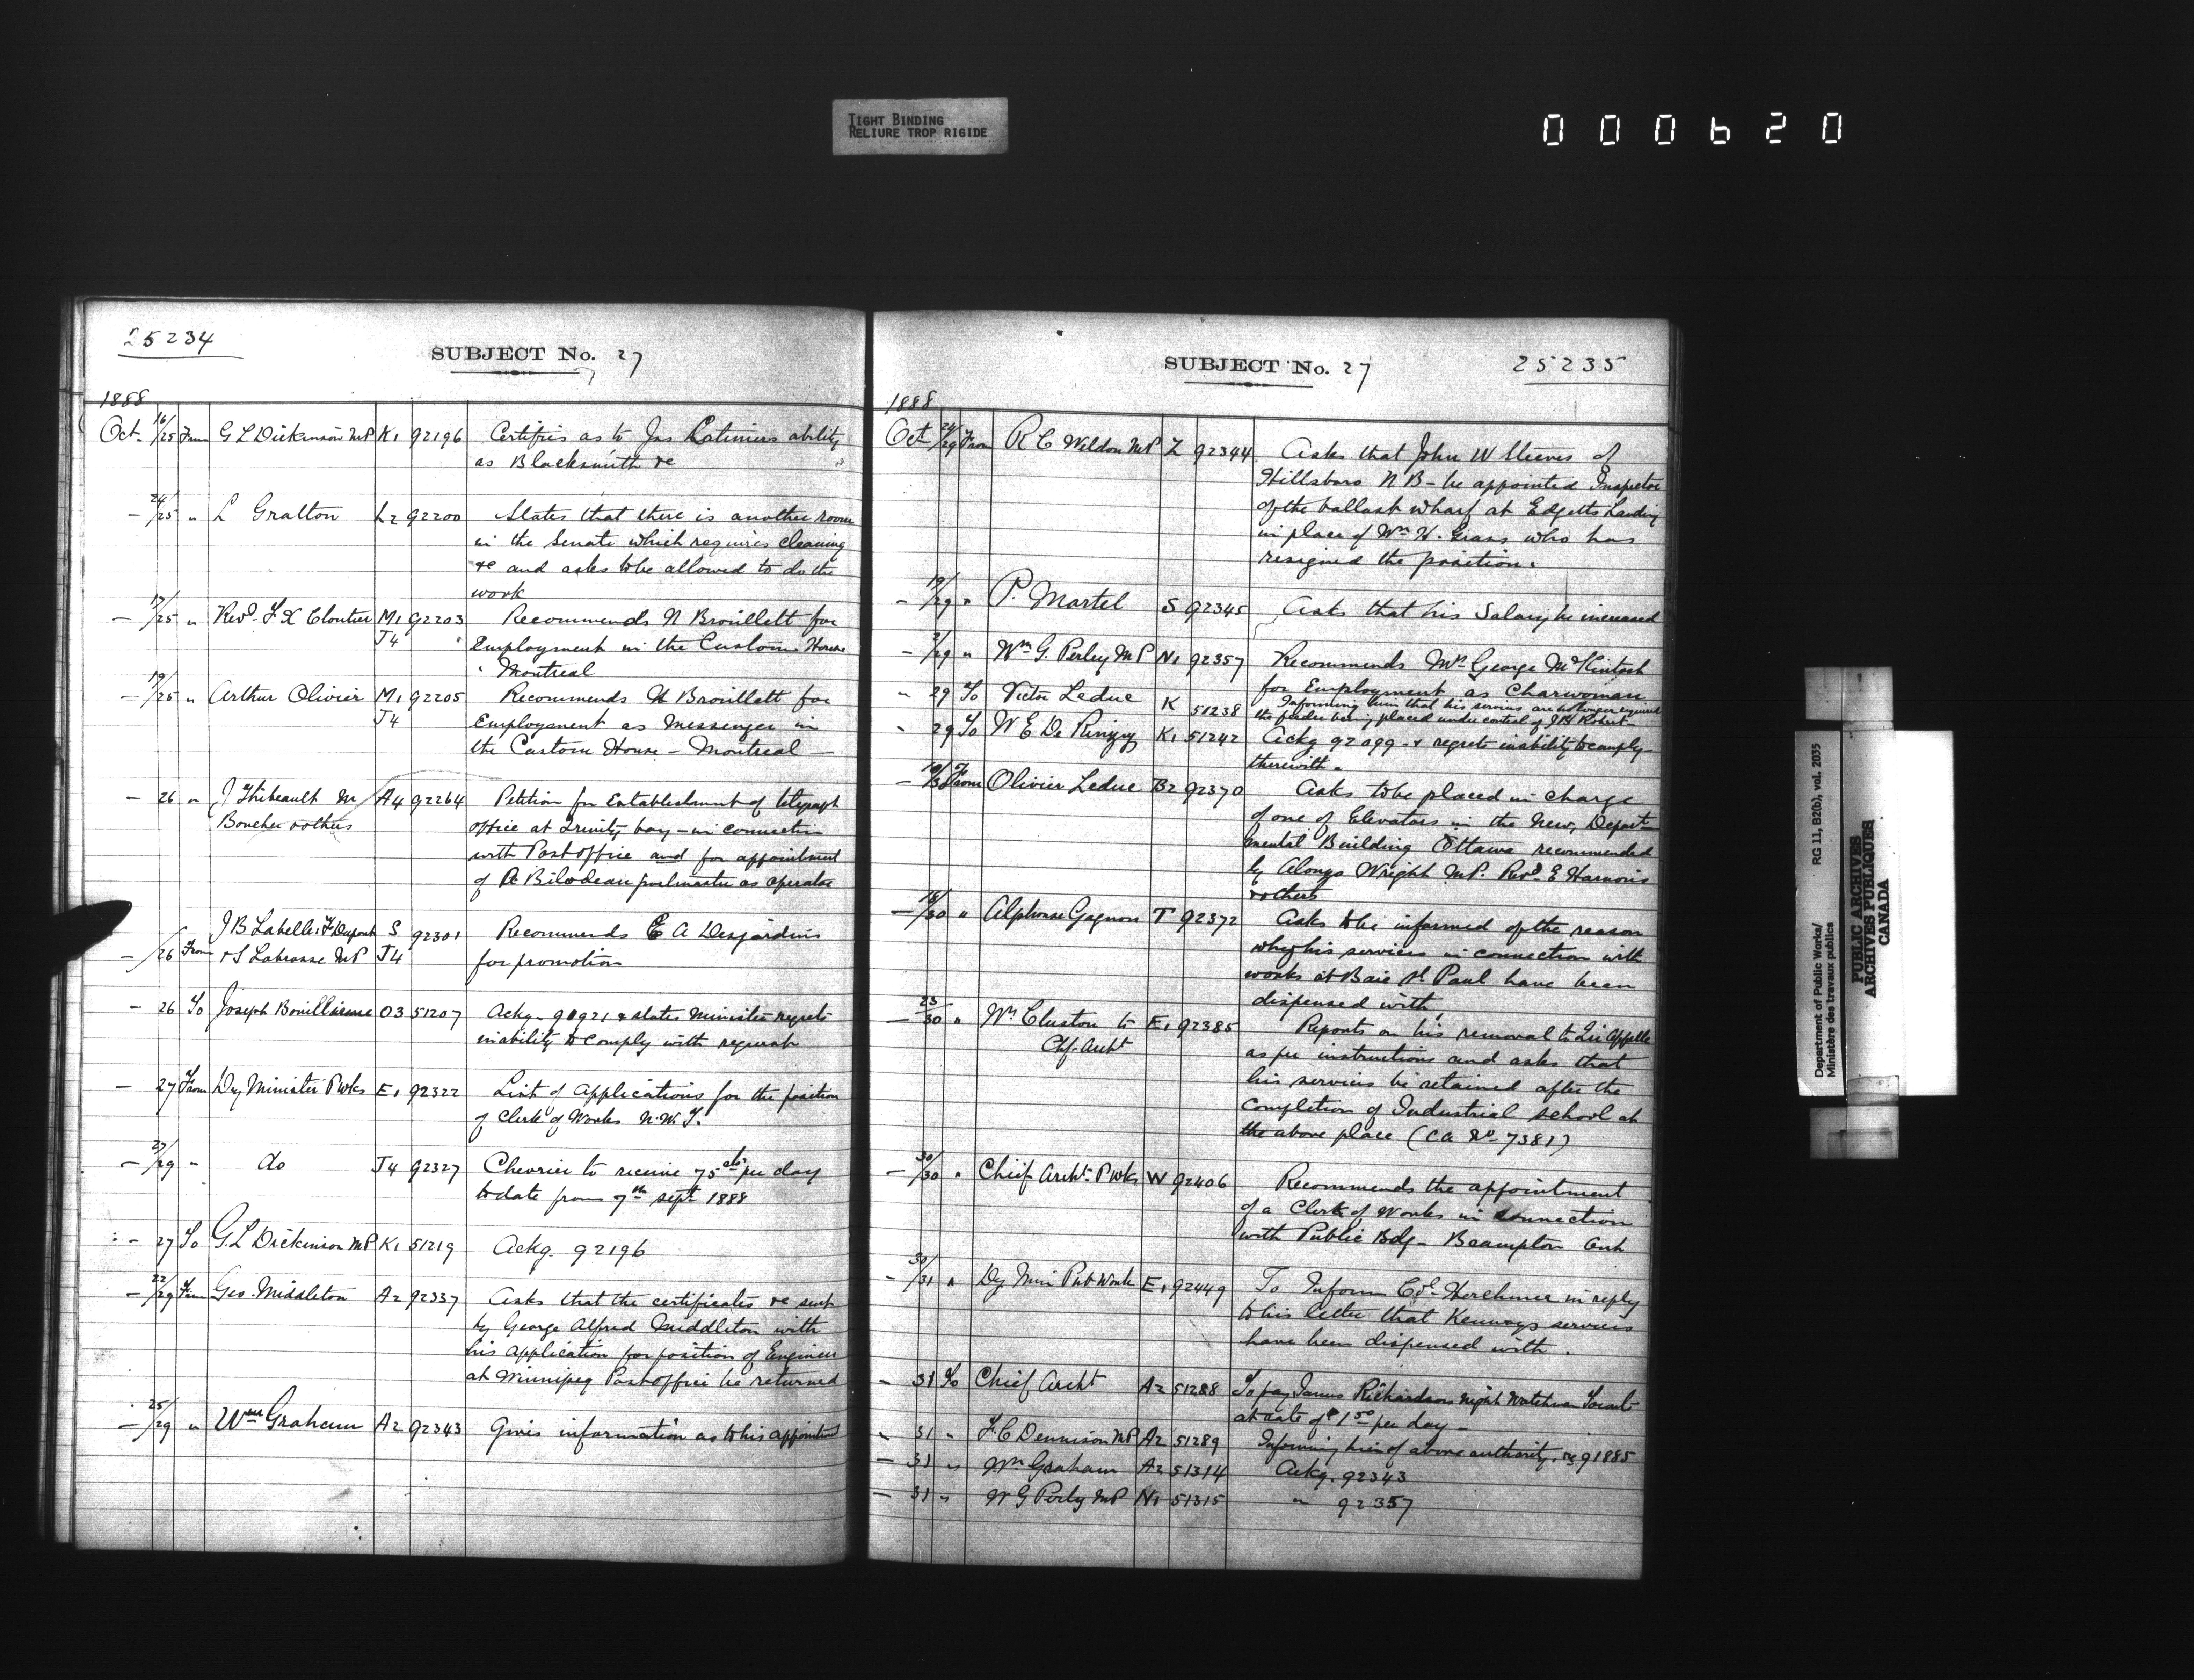 TIGHT BINDING
RELIURE TROP RIGIDE
000620
25234
SUBJECT No. 27
1888
Oct. 16/25 From G L Dickinson MP K1 92196 Certifies as to Jas Latimers ability
as Blacksmith &c
- 24/25 " L Gratton L2 92200 States that there is another room
in the Senate which requires cleaning
&c and asks to be allowed to do the
work
- 17/25 " Revd. F X Cloutier M1 92203 Recommends N Brouillett for
J4 Employment in the Custom House
Montreal
- 19/25 " Arthur Olivier M1 92205 Recommends N Brouillett for
J4 Employment as Messenger in
the Custom House - Montreal
- 26 " J Thibeault M A4 92264 Petition for Establishment of telegraph
Boucher & others office at Trinity bay - in connection
with Post office and for appointment
of Bilodeau postmaster as operator
- /26 From J B Labelle, F Dupont S 92301 Recommends E A Desjardins
& S Labrosse MP J4 for promotion
- 26 To Joseph Bouillianne O3 51207 Ackg. 90921 & states Minister regrets
inability to comply with request
- 27 From Dy Minister P Wks E1 92322 List of Applications for the position
of Clerk of Works N.W.T.
- 27/29 " do J4 92327 Chevrier to receive 75 cts per day
to date from 7th Sept 1888
- 27 To G. L Dickinson MP K1 51219 Ackg. 92196
- 22/29 From Geo. Middleton A2 92337 Asks that the certificates &c sent
by George Alfred Middleton with
his application for position of Engineer
at Winnipeg Post office be returned
- 25/29 " Wm Graham A2 92343 Gives information as to his appointment
SUBJECT No. 27
25235
1888
Oct 24/29 From R C Weldon MP Z 92344 Asks that John W Steeves of
Hillsboro N B - be appointed Inspector
of the ballast wharf at Edgetts Landing
in place of Wm H. Grass who has
resigned the position.
- 19/29 " P. Martel S 92345 Asks that his Salary be increased
- 2/29 " Wm G. Perley MP N1 92357 Recommends Mrs George McKintosh
for Employment as Charwoman
" 29 To Victor Leduc K 51238 Informing him that his services are no longer required
the being placed under control of Robert
" 29 To W E De Rinzy K1 51242 Ackg 92099 - & regrets inability to comply
therewith.
- 10/30 From Olivier Leduc B2 92370 Asks to be placed in charge
of one of Elevators in the New Depart-
mental Building Ottawa recommended
by Alonzo Wright MP. Revd E Harnois
& others
- 18/30 " Alphonse Gagnon T 92372 Asks to be informed of the reason
why his services in connection with
works at Baie St Paul have been
dispensed with
- 23/30 " Wm Cluston to E1 92385 Reports on his removal to Qu'Appelle
Chf. Archt as per instructions and asks that
his services be retained after the
completion of Industrial school at
the above place (CA No. 7381)
- 30/30 " Chief Archt. P Wks W 92406 Recommends the appointment
of a Clerk of Works in connection
with Public Bdg - Brampton Ont
- 30/31 " Dy Min Pub Works E1 92449 To Inform Col. Herchmer in reply
to his letter that Kenways services
have been dispensed with.
- 31 To Chief Archt A2 51288 To pay James Richardson night watchman Toronto
at rate of $1 50 per day -
" 31 " F. C Dennison MP A2 51289 Informing him of above authority, re 91885
- 31 " Wm Graham A2 51314 Ackg. 92343
- 31 " W G Perly MP N1 51315 " 92357
Department of Public Works/ RG 11, B2(b), vol. 2035
Ministère des travaux publics
PUBLIC ARCHIVES
ARCHIVES PUBLIQUES
CANADA